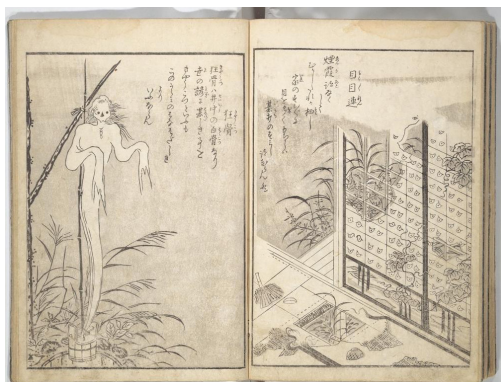 目目連
煙霞跡なくして
むかしたれか栖し
家のすみずみに
目を多くもちしは
碁打のすみし
跡ならんか
狂骨
狂骨は井中の白骨なり
世の諺に甚しき事を
きやうこつといふも
このうらみのはなはだしき
より
いふならん